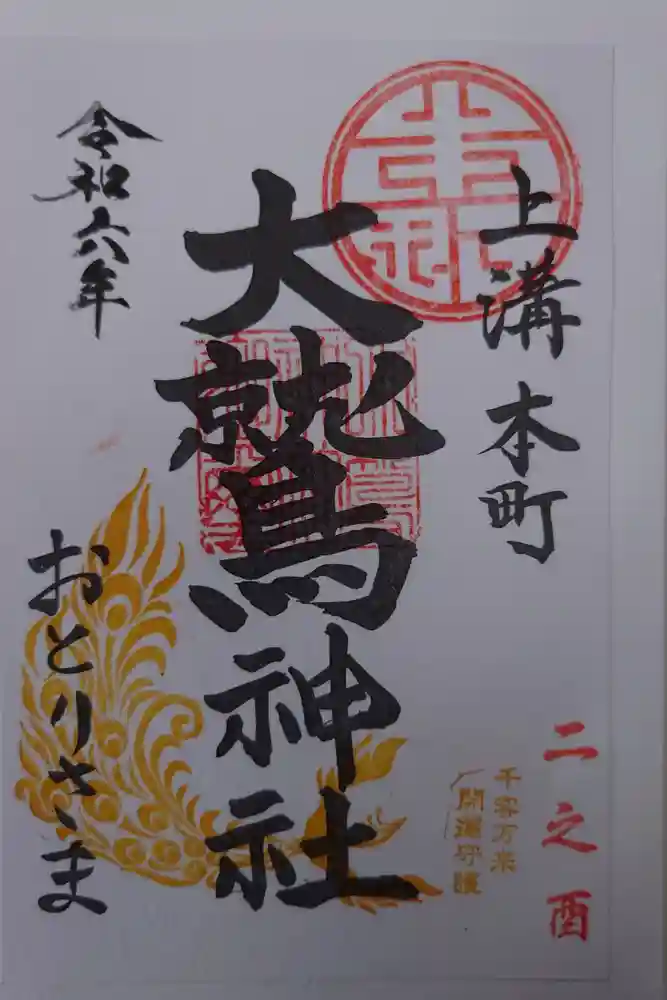 上溝本町
二之酉
千客万来
開運守護
大鷲神社
令和六年
おとりさま